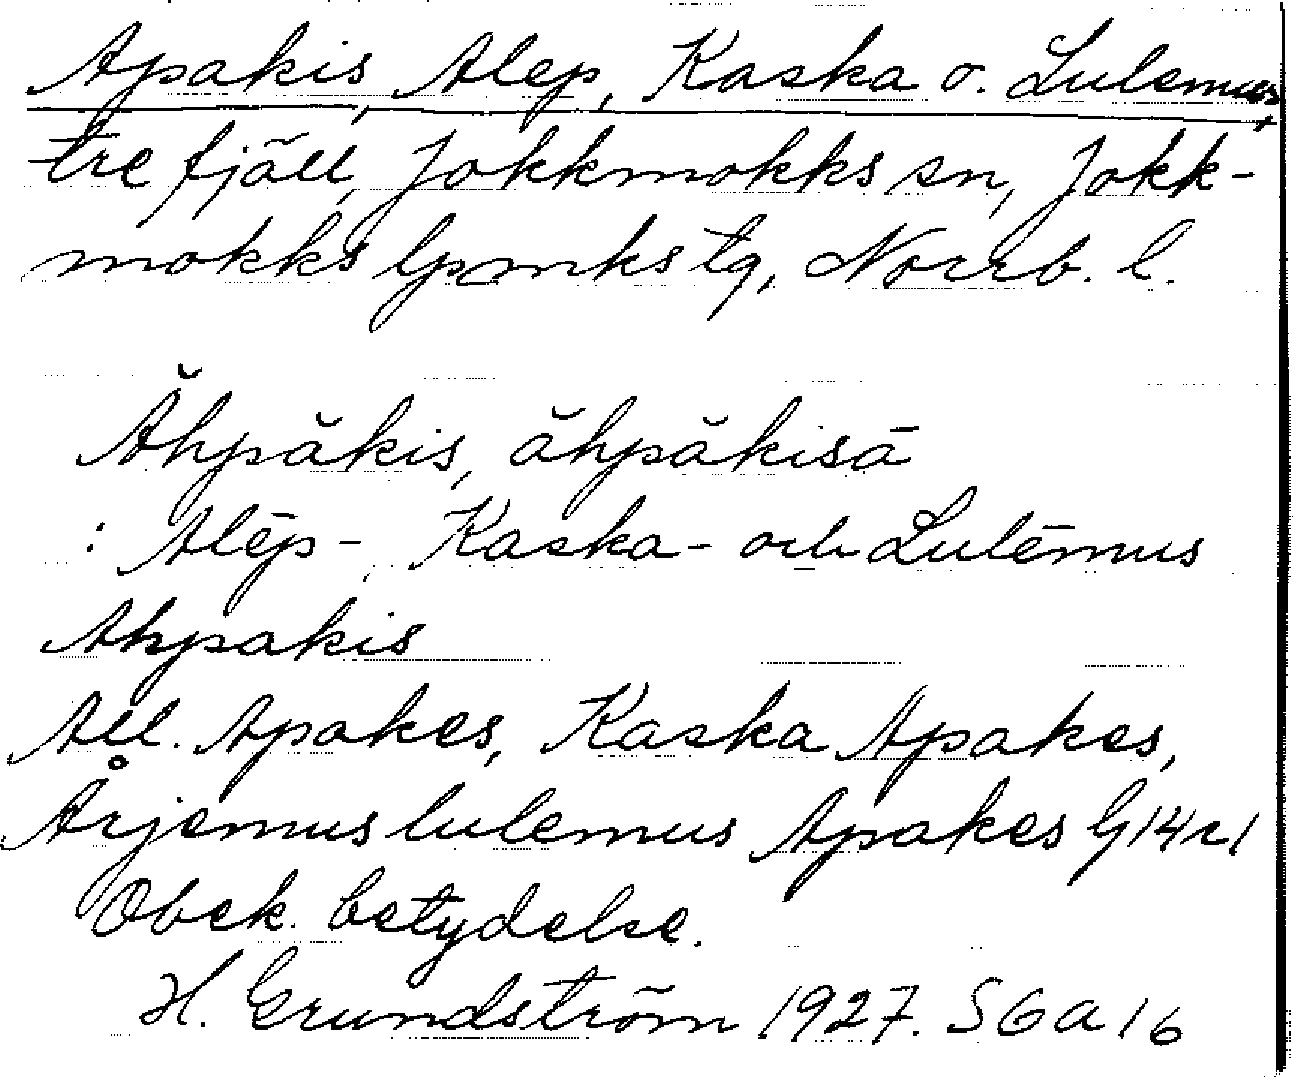 Apakis, Alep, Kaska o. Lulemus,
tre fjäll, Jokkmokks sn, Jokk-
mokks lpmks tg, Norrb. l.
Ǎhpǎkis, ǎhpǎkisā
: Alēp-, Kaska- och Lulēmus
Ahpakis
All. Apakes, Kaska Apakes,
Årjemus lulemus Apakes G14r1
Obek. betydelse.
H. Grundström 1927. SGA 16